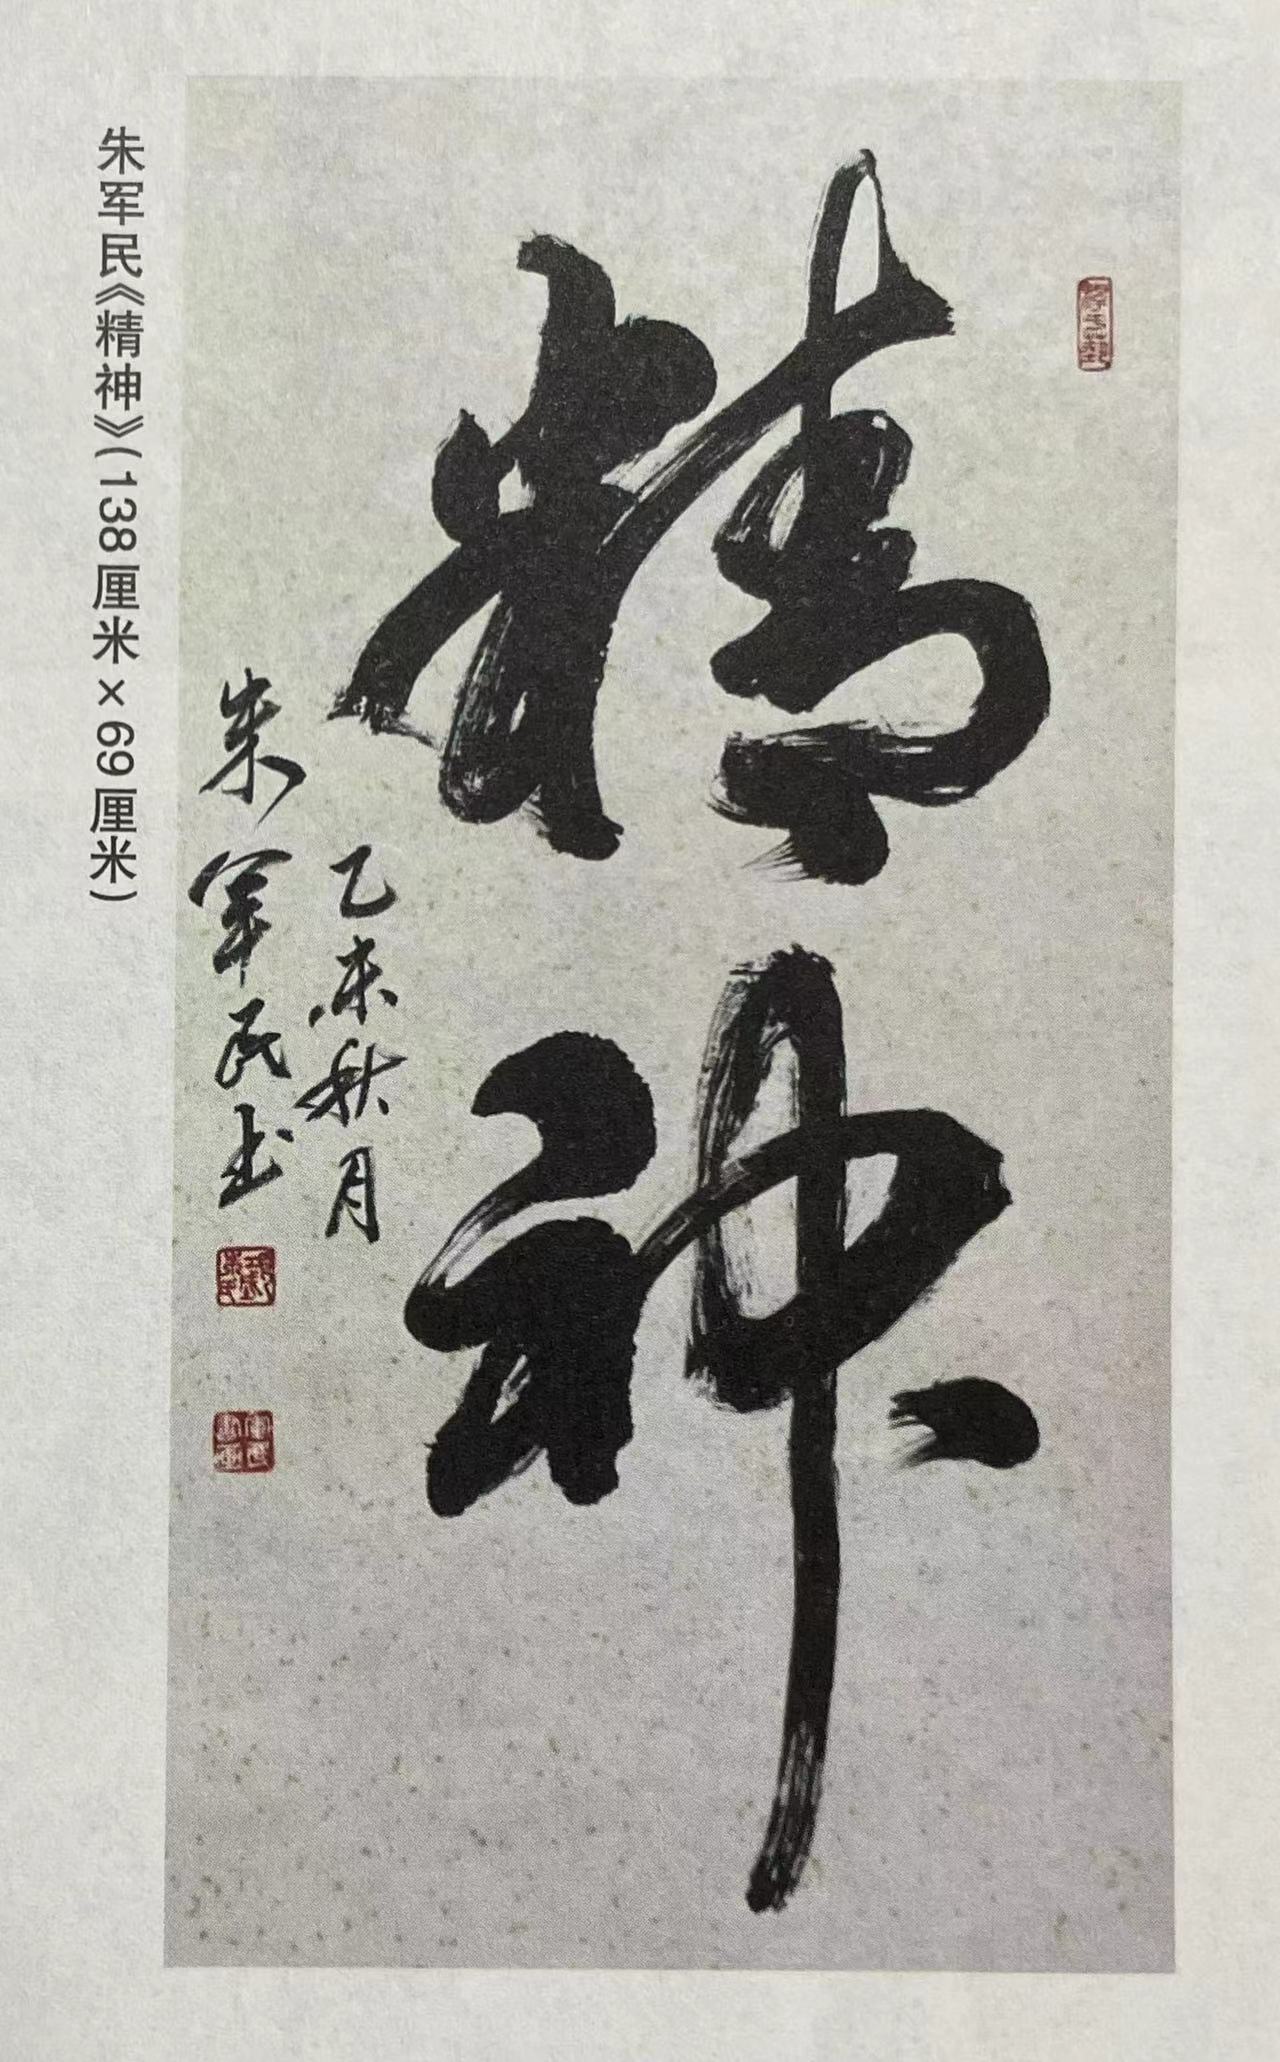 精神
乙未秋月
朱军民书
朱军民《精神》(138厘米×69厘米)